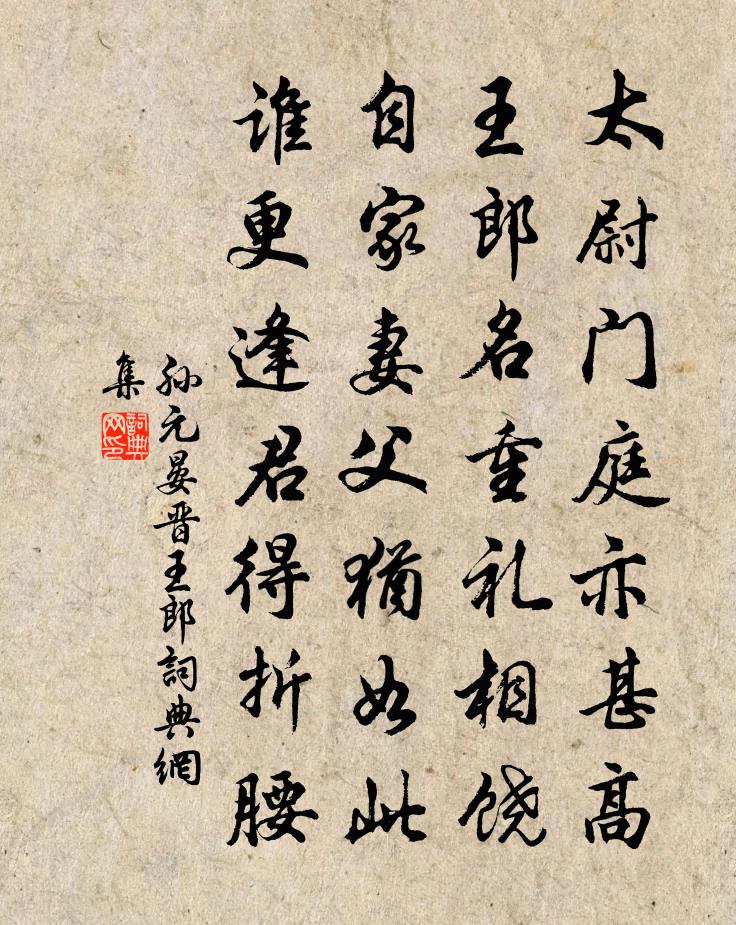 太尉门庭亦甚高
王郎名重礼相饶
自家妻父猶如此
誰更逢君得折腰
孙元晏晋王郎詞典網
集
詞典
网印